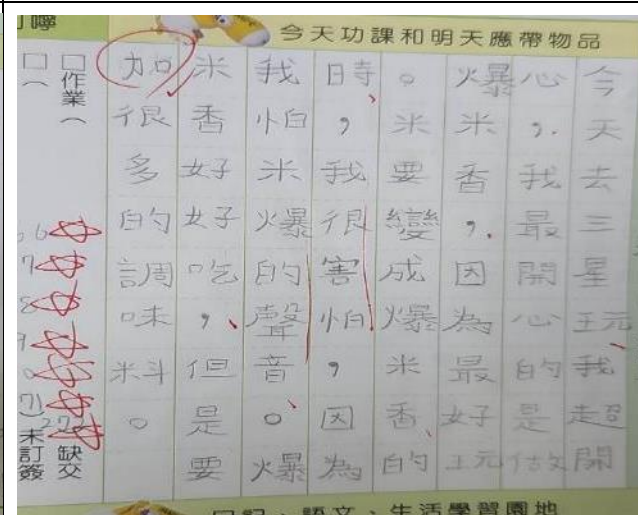 今天功課和明天應帶物品
今天去三星玩我超開
心，我最開心的是做
爆米香，因為最好玩
。米要變成爆米香的
時，我很害怕，因為
我怕米爆的聲音。爆
米香好好吃，但是要
加很多的調味料。
□作業（
缺交
□（
未訂簽
日記、語文、生活學習園地